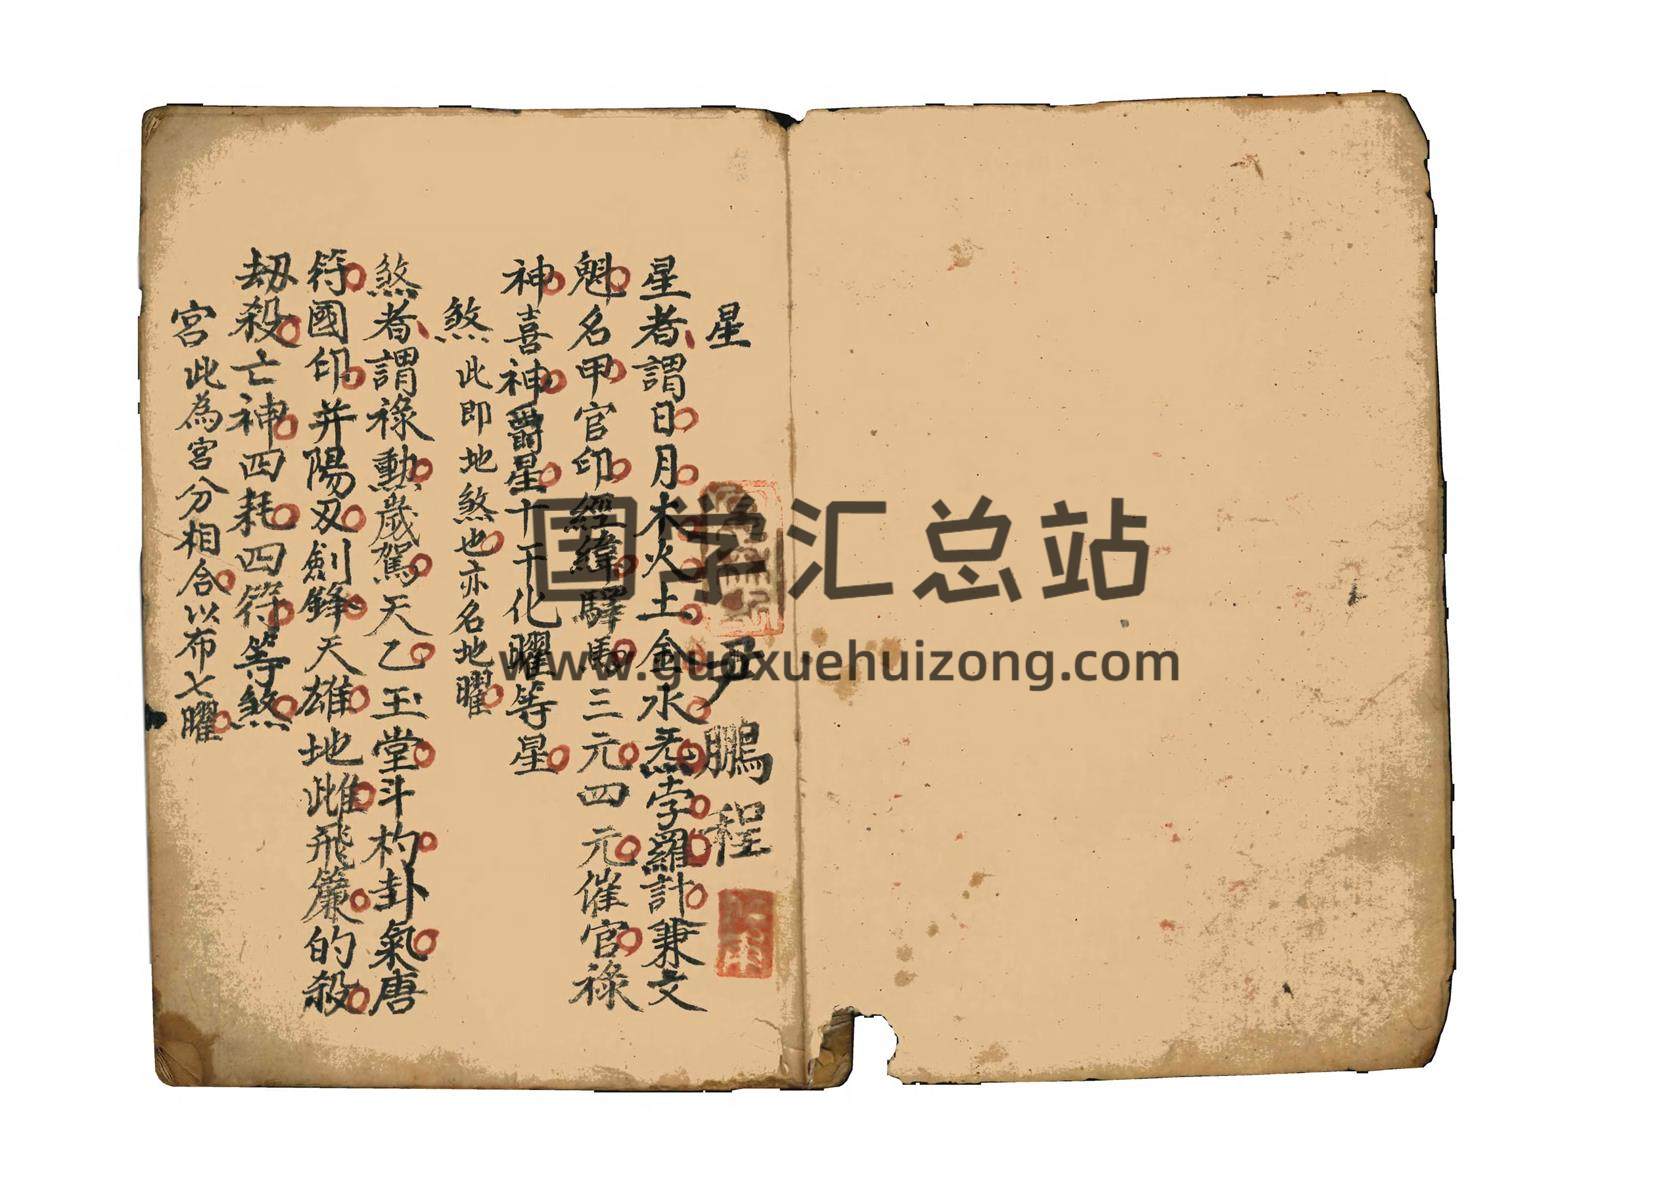 星
尹鵬程
星者謂日月木火土金水炁孛羅計兼文
魁名甲官印經緯驛馬三元四元催官祿
神喜神爵星十干化曜等星
煞此即地煞也亦名地曜
煞者謂祿勳歲駕天乙玉堂斗杓卦氣唐
符國印并陽刃劍鋒天雄地雌飛簾的殺
劫殺亡神四耗四符等煞
宮此為宮分相合以布七曜
国学汇总站
www.guoxuehuizong.com